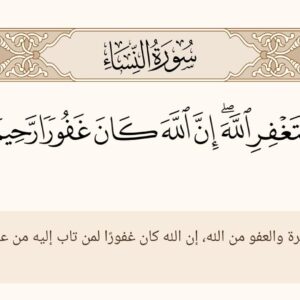 سُورَةُ النِّسَاءِ
تَغْفِرِ ٱللَّهَۖ إِنَّ ٱللَّهَ كَانَ غَفُورٗا رَّحِيم
رة والعفو من الله، إن الله كان غفورًا لمن تاب إليه من ع